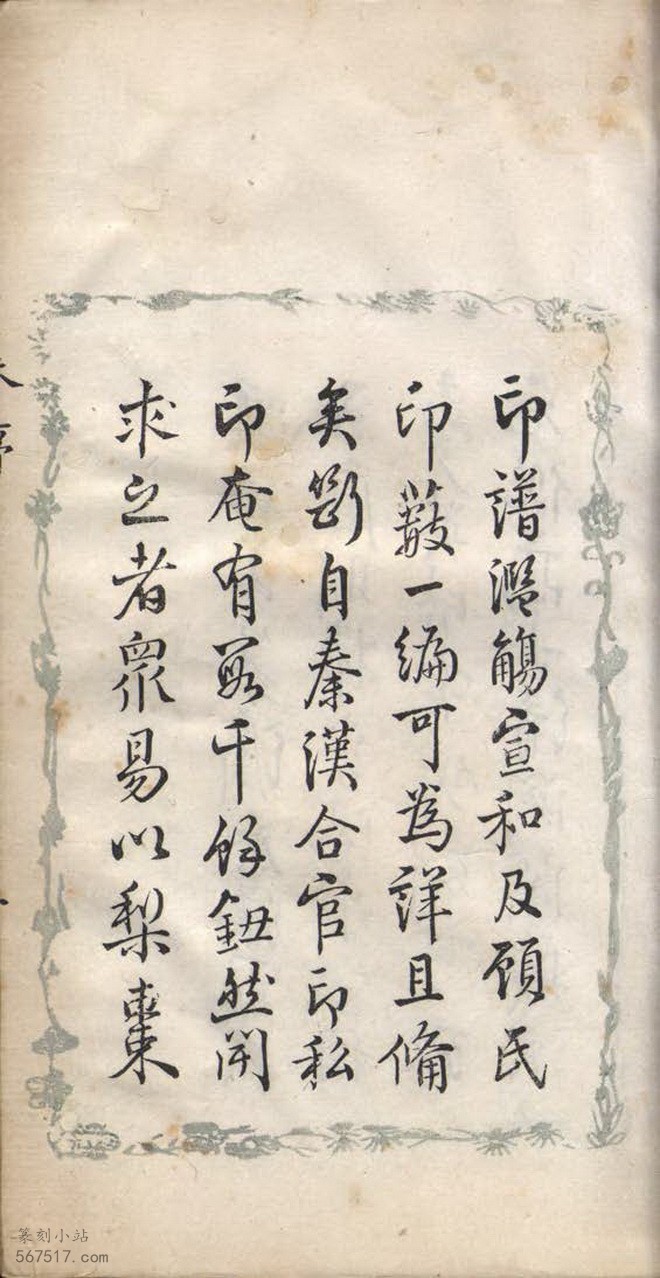 印譜濫觴宣和及顧氏
印藪一編可為詳且備
矣斷自秦漢合官印私
印奄有數千餘鈕然開
求之者眾易以梨棗
序
篆刻小站
567517.com